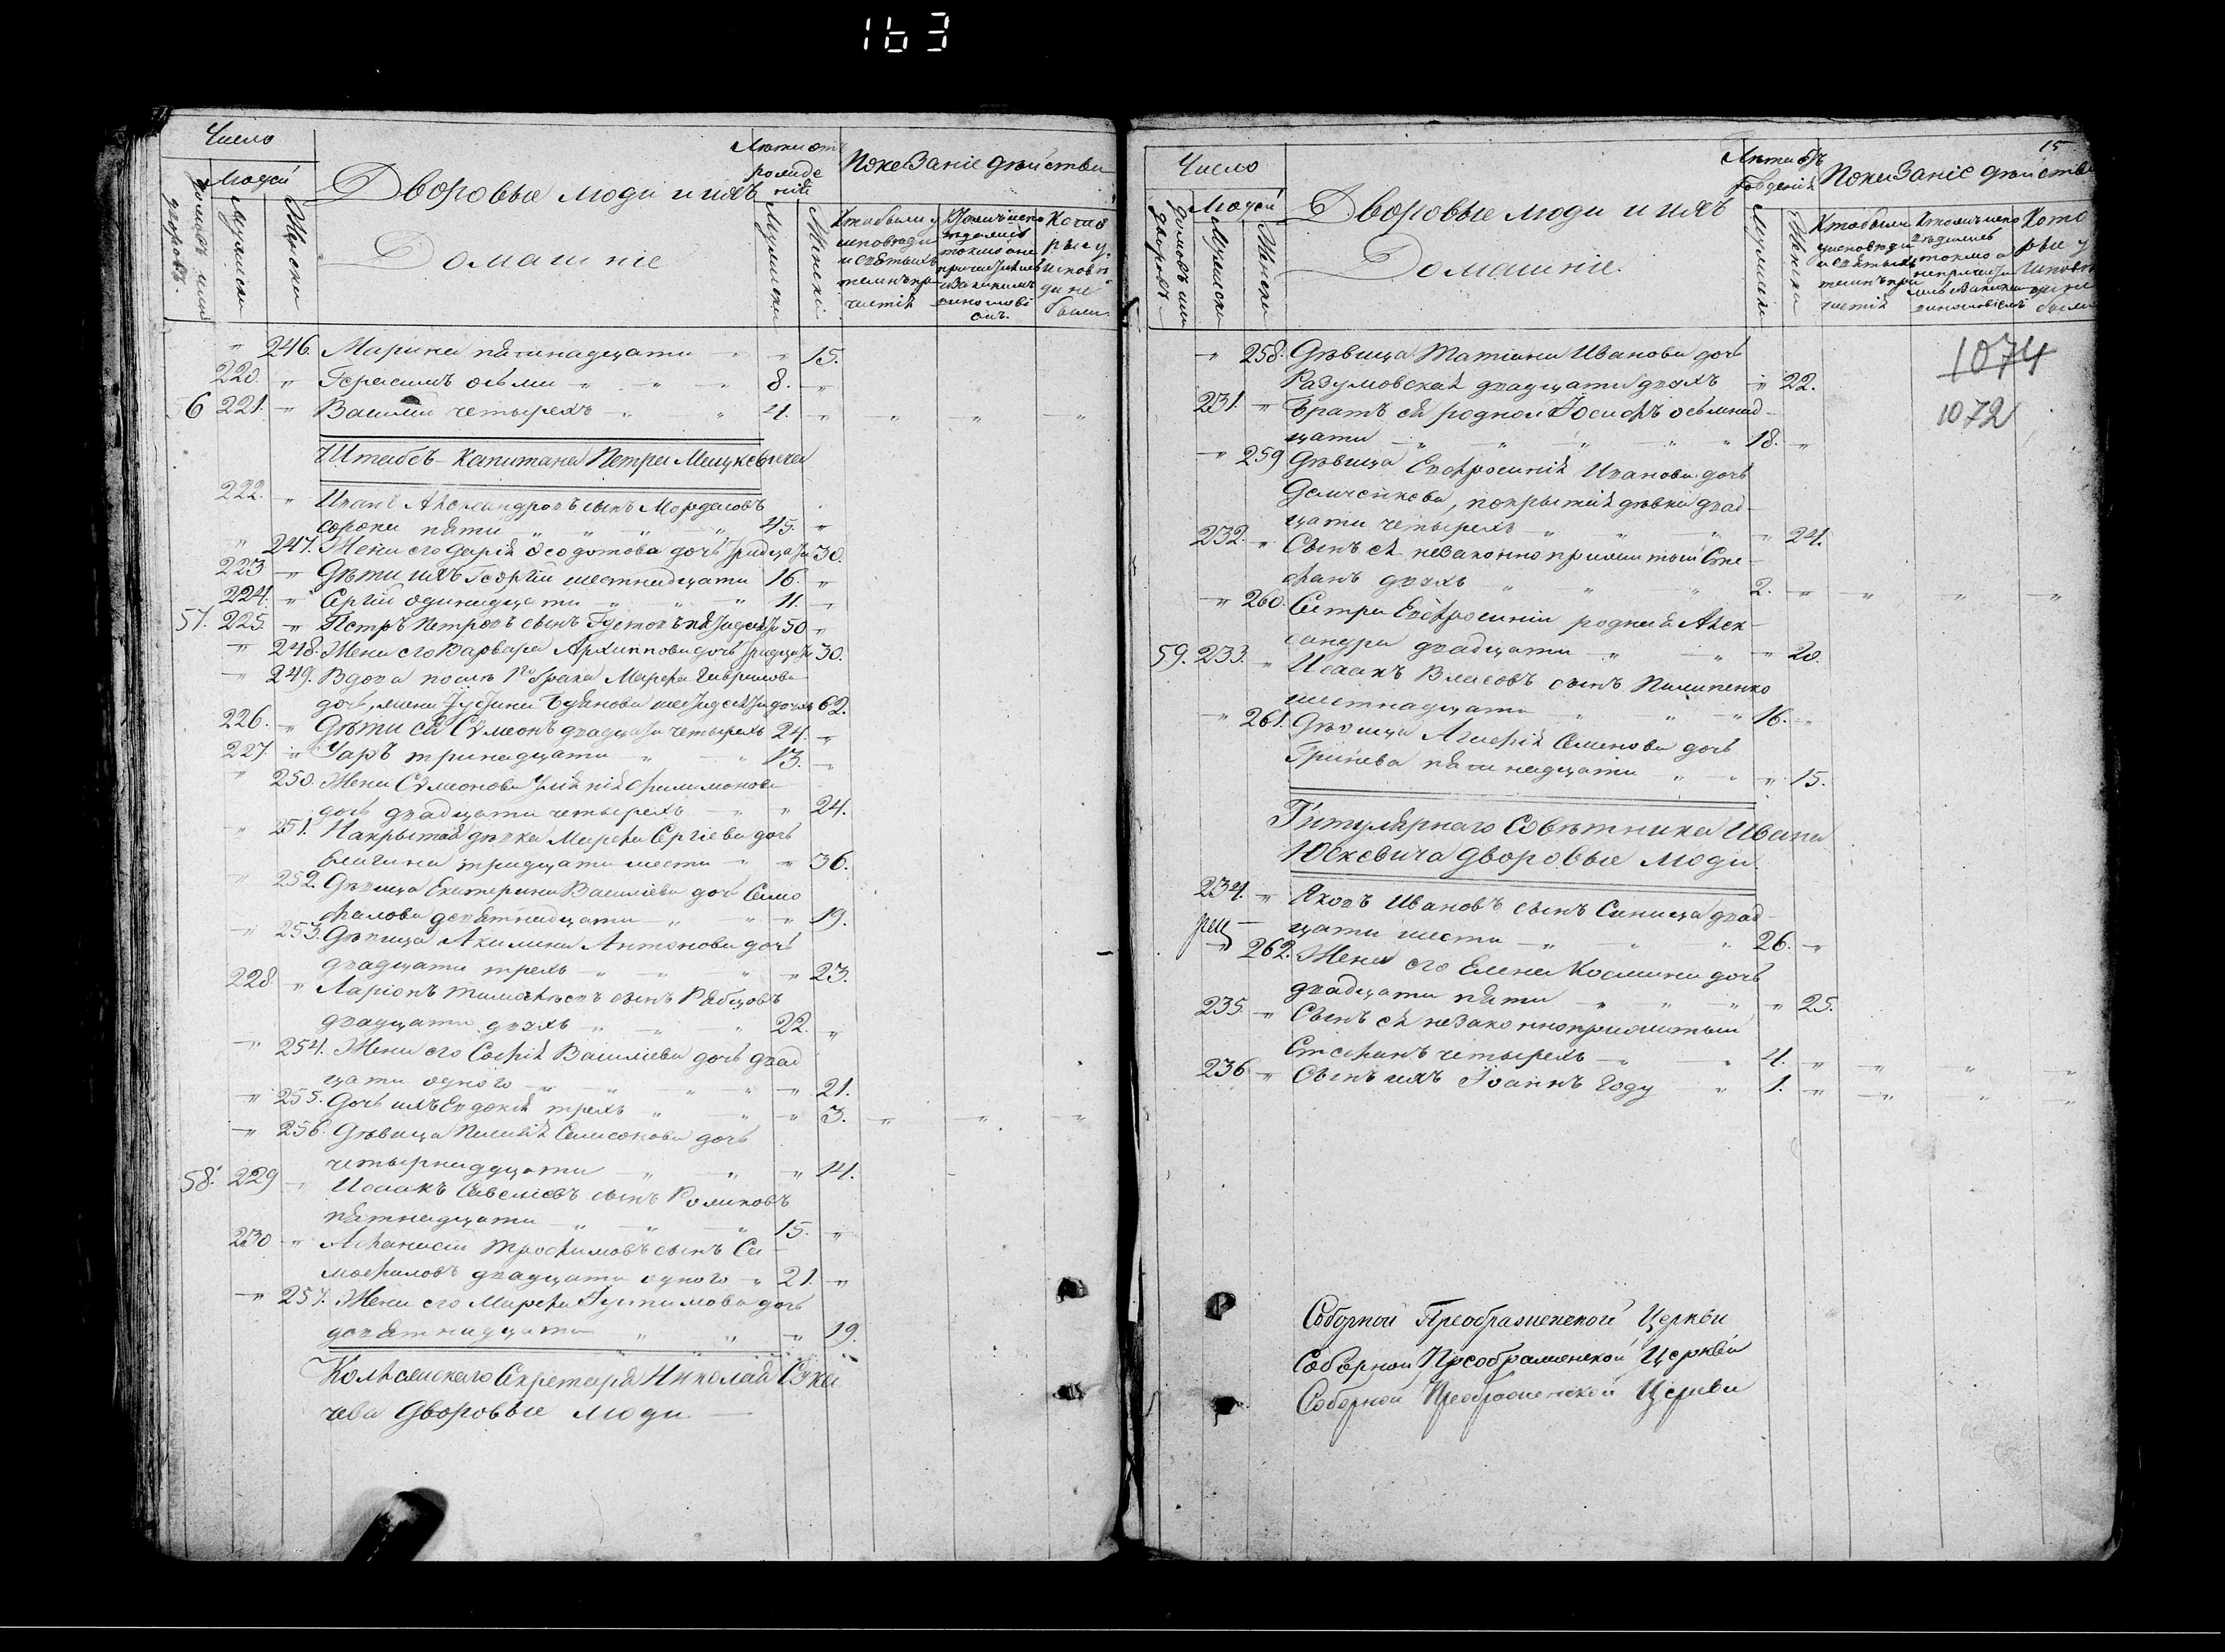 163
Число
Людей
домовъ или дворовъ.
Мужеска
Женска
Дворовые люди и ихъ
Домашніе
Лѣта отъ рожде нія
Мужеска
Женска
Показаніе дѣйства
Кто были у исповѣди и святыхъ таинъ при частія
Которые у исповѣ ди не были
246. Марина пятинадцати 15.
220. Герасимъ осьми 8.
6 221. Василій четырехъ 4.
Штабсъ-Капитана Петра Мицкевича
222. Иванъ Александровъ сынъ
сорока пяти 45.
247. Жена его Дарія Ѳеодотова дочь тридцати 30.
223 Дѣти ихъ Георгій шестнадцати 16.
224. Сергій одинадцати 11.
57. 225. Петръ Петровъ сынъ Густовъ пятидесяти 50
248. Жена его Варвара Архиппова дочь тридцати 30.
249. Вдова послѣ 1го брака Марфа Гаврилова
дочь, шестидесяти двухъ 62.
226. Дѣти ея Сѵмеонъ двадцати четырехъ 24.
227 Уаръ тринадцати 13.
250. Жена Сѵмеонова Филимонова
дочь двадцати четырехъ 24.
251. Накрытая дѣвка Марфа Сергіева дочь
тридцати шести 36.
252. Дѣвица Екатерина Василіева дочь Само
фалова девятнадцати 19.
253. Дѣвица Акилина Антонова дочь
двадцати трехъ 23.
228. Ларіонъ Тимофѣевъ сынъ Рябцовъ
двадцати двухъ 22.
254. Жена его Софія Василіева дочь двад
цати одного 21.
255. Дочь ихъ Евдокія трехъ 3.
256. Дѣвица Пелагія Самсонова дочь
четырнадцати 14.
58. 229 Исаакъ Савеліевъ сынъ
пятнадцати 15.
230 Афанасій Трофимовъ сынъ Са
мофаловъ двадцати одного 21.
257. Жена его Марфа Устимова дочь
девятнадцати 19.
Коллежскаго Секретаря Николая Сука
чева Дворовые люди.
15
Число
Людей
домовъ или дворовъ
Мужеска
Женска
Дворовые люди и ихъ
Домашніе.
Лѣта отъ рожденія
Мужеска
Женска
Показаніе дѣйства
Кто были у исповѣди и святыхъ таинъ при частія
Кото рые у исповѣ ди не были
258. Дѣвица Татіана Иванова дочь
Разумовская двадцати двухъ 22.
1074
1072
231. Братъ ея родной Іосифъ осьмнад-
цати 18.
259 Дѣвица Евфросинія Иванова дочь
Демченкова, покрытая дѣвка двад-
цати четырехъ 24.
232. Сынъ ея незаконно прижитый Сте-
фанъ двухъ 2.
260. Сестра Евфросиніи родная Алек-
сандра двадцати 20.
59. 233. Исаакъ Власовъ сынъ Пилипенко
шестнадцати 16.
261. Дѣвица Агафія Семенова дочь
Гринева пятинадцати 15.
Титулярнаго Совѣтника Ивана
Юскевича дворовые люди.
234. Яковъ Ивановъ сынъ Синица двад-
цати шести 26.
262. Жена его Елена Космина дочь
двадцати пяти 25.
235. Сынъ ея незаконноприжитый
Стефанъ четырехъ 4.
236 Сынъ ихъ Іоаннъ году 1.
Соборной Преображенской Церкви
Соборной Преображенской Церкви
Соборной Преображенской Церкви